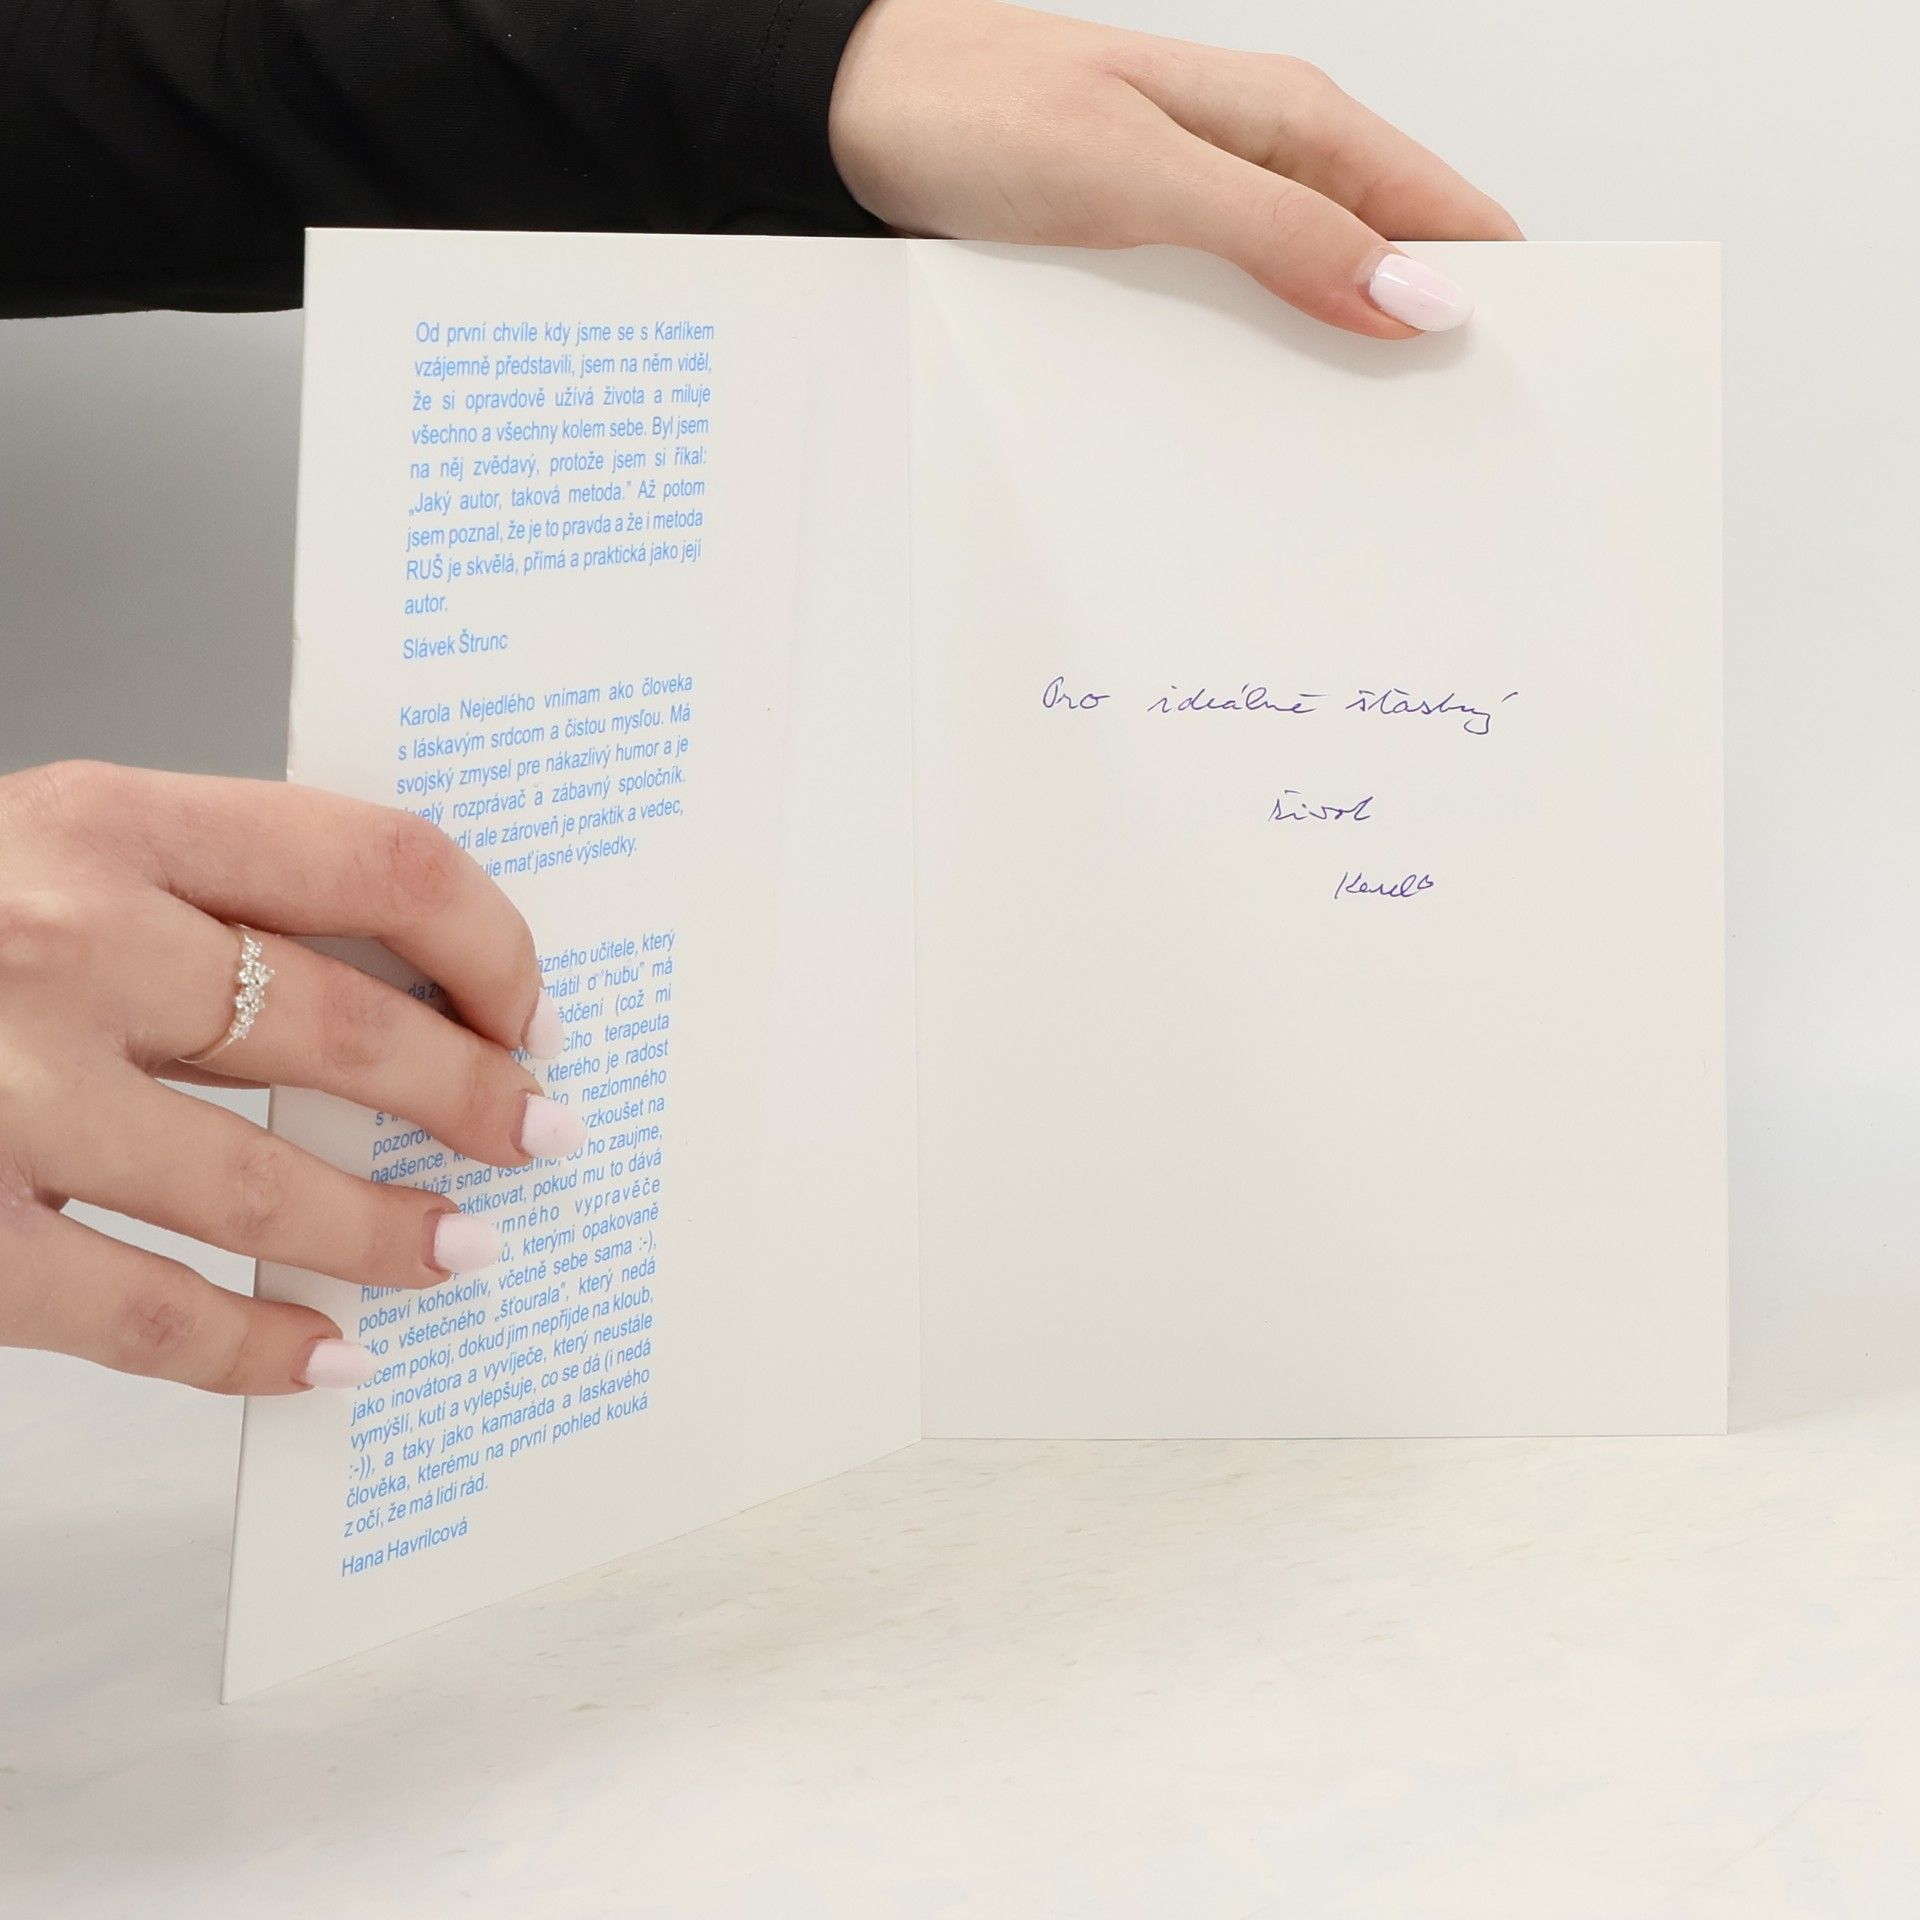 Od první chvíle kdy jsme se s Karlíkem
vzájemně představili, jsem na něm viděl,
že si opravdově užívá života a miluje
všechno a všechny kolem sebe. Byl jsem
na něj zvědavý, protože jsem si říkal:
„Jaký autor, taková metoda.” Až potom
jsem poznal, že je to pravda a že i metoda
RUŠ je skvělá, přímá a praktická jako její
autor.
Slávek Štrunc
Karola Nejedlého vnímam ako človeka
s láskavým srdcom a čistou mysľou. Má
svojský zmysel pre nákazlivý humor a je
rozprávač a zábavný spoločník.
ale zároveň je praktik a vedec,
mať jasné výsledky.
učitele, který
o "hubu” má
(což mi
terapeuta
kterého je radost
nezlomného
vyzkoušet na
nadšence, ho zaujme,
kůži snad všechno,
pokud mu to dává
vypravěče
kterými opakovaně
pobaví kohokoliv, včetně sebe sama :-),
všetečného „šťourala”, který nedá
pokoj, dokud jim nepřijde na kloub,
jako inovátora a vyvíječe, který neustále
vymýšlí, kutí a vylepšuje, co se dá (i nedá
:-)), a taky jako kamaráda a laskavého
člověka, kterému na první pohled kouká
z očí, že má lidi rád.
Hana Havrilcová
Pro ideálně šťastný
život
Karel